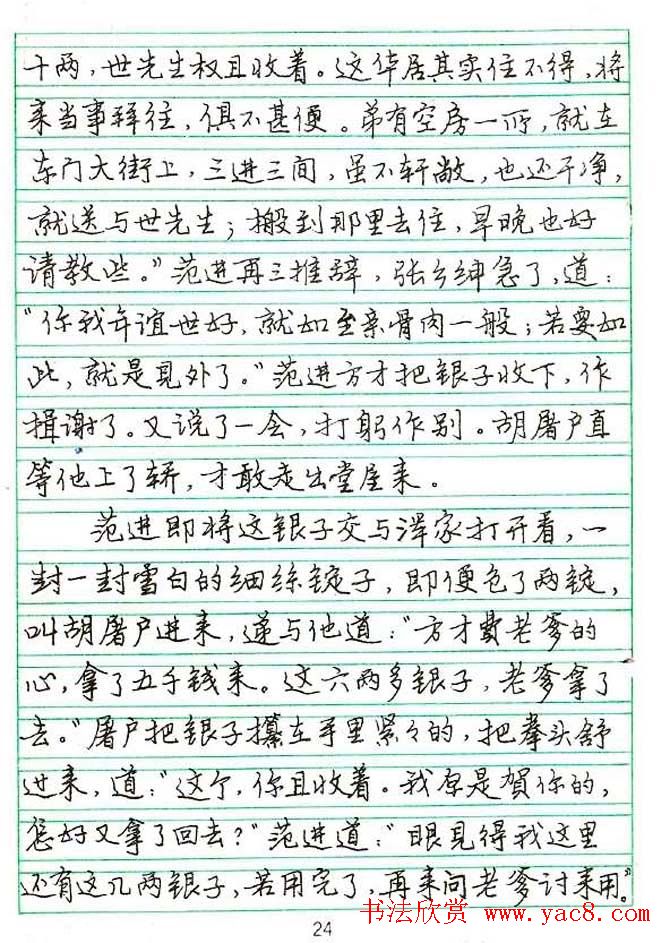 十两，世先生权且收着。这华居其实住不得，将
来当事拜往，俱不甚便。弟有空房一所，就在
东门大街上，三进三间，虽不轩敞，也还干净，
就送与世先生；搬到那里去住，早晚也好
请教些。”范进再三推辞，张乡绅急了，道：
“你我年谊世好，就如至亲骨肉一般；若要如
此，就是见外了。”范进方才把银子收下，作
揖谢了。又说了一会，打躬作别。胡屠户直
等他上了轿，才敢走出堂屋来。
范进即将这银子交与浑家打开看，一
封一封雪白的细丝锭子，即便包了两锭，
叫胡屠户进来，递与他道：“方才费老爹的
心，拿了五千钱来。这六两多银子，老爹拿了
去。”屠户把银子攥在手里紧々的，把拳头舒
过来，道：“这个，你且收着。我原是賀你的，
怎好又拿了回去？”范进道：“眼見得我这里
还有这几两银子，若用完了，再来问老爹讨来用。”
24
书法欣赏 www.yac8.com